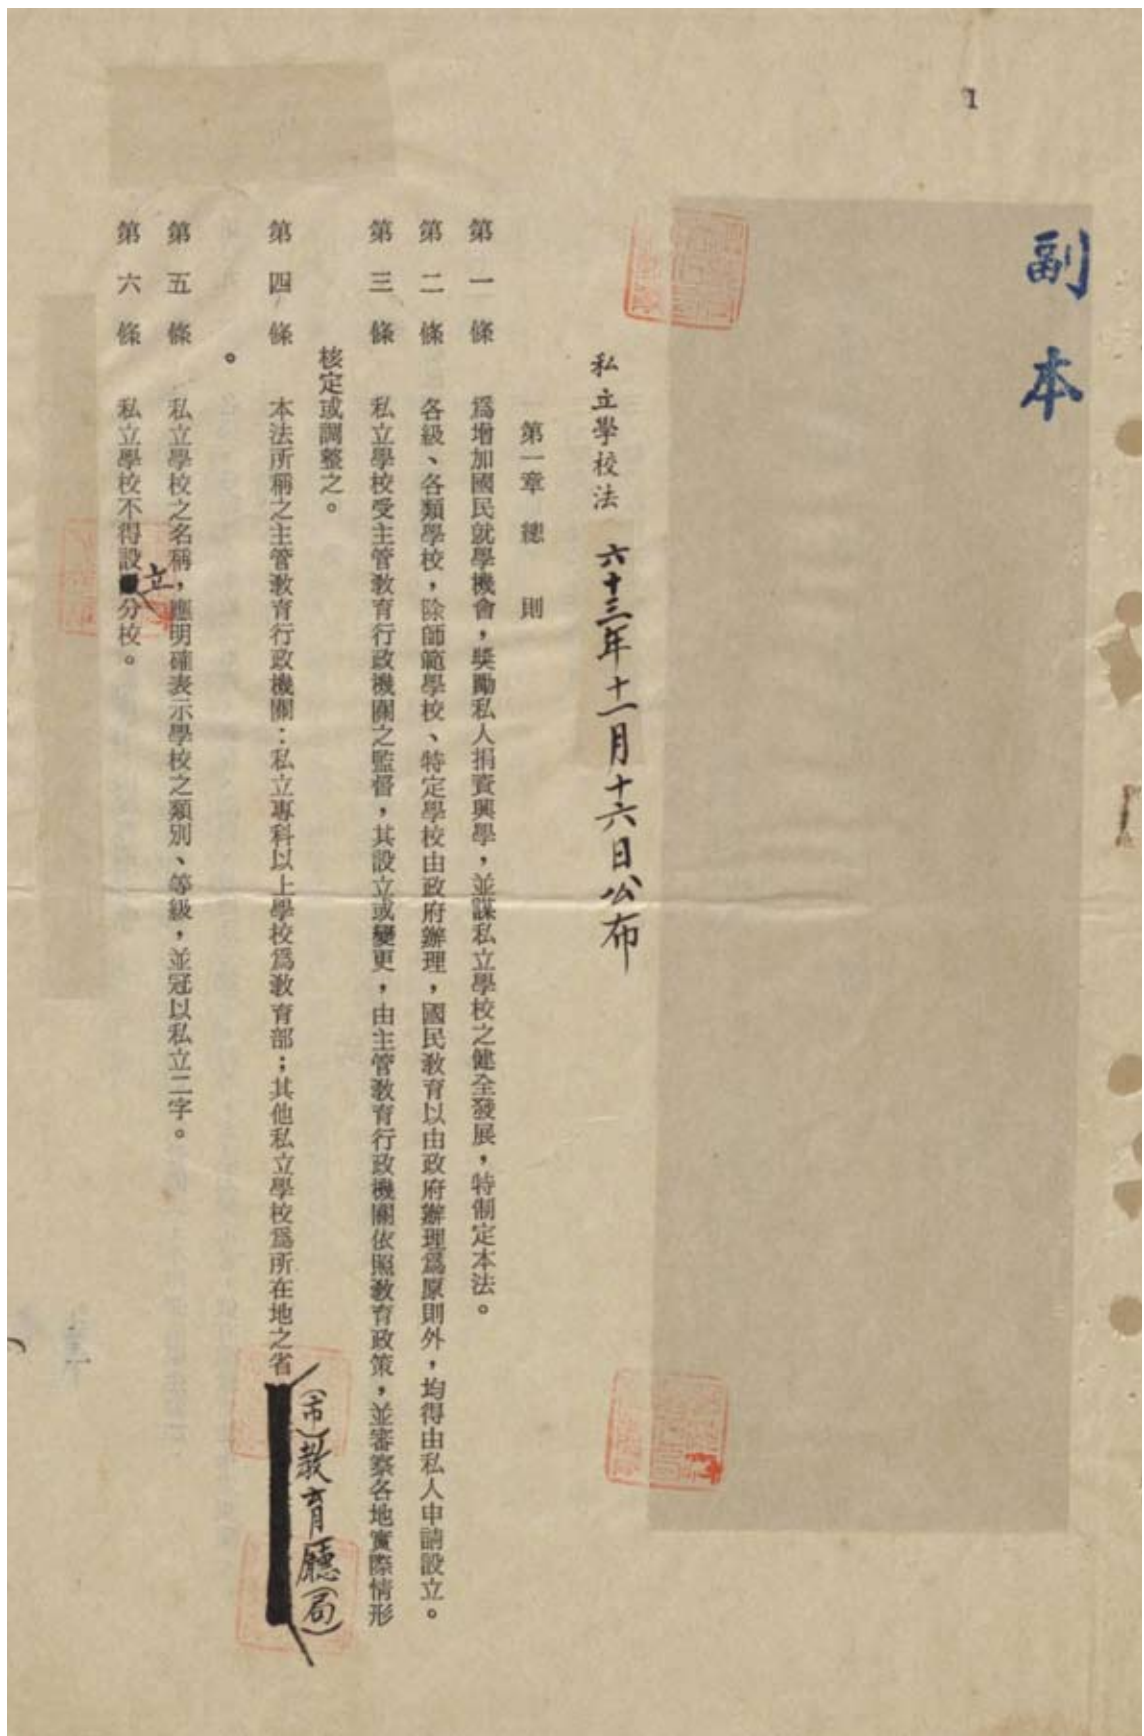 1
副本
私立學校法 六十三年十一月十六日公布
第一章 總則
第一條 爲增加國民就學機會，獎勵私人捐資興學，並謀私立學校之健全發展，特制定本法。
第二條 各級、各類學校，除師範學校、特定學校由政府辦理，國民教育以由政府辦理爲原則外，均得由私人申請設立。
第三條 私立學校受主管教育行政機關之監督，其設立或變更，由主管教育行政機關依照教育政策，並審察各地實際情形
核定或調整之。
第四條 本法所稱之主管教育行政機關：私立專科以上學校爲教育部；其他私立學校爲所在地之省(市)教育廳(局)
。
第五條 私立學校之名稱，應明確表示學校之類別、等級，並冠以私立二字。
第六條 私立學校不得設立分校。